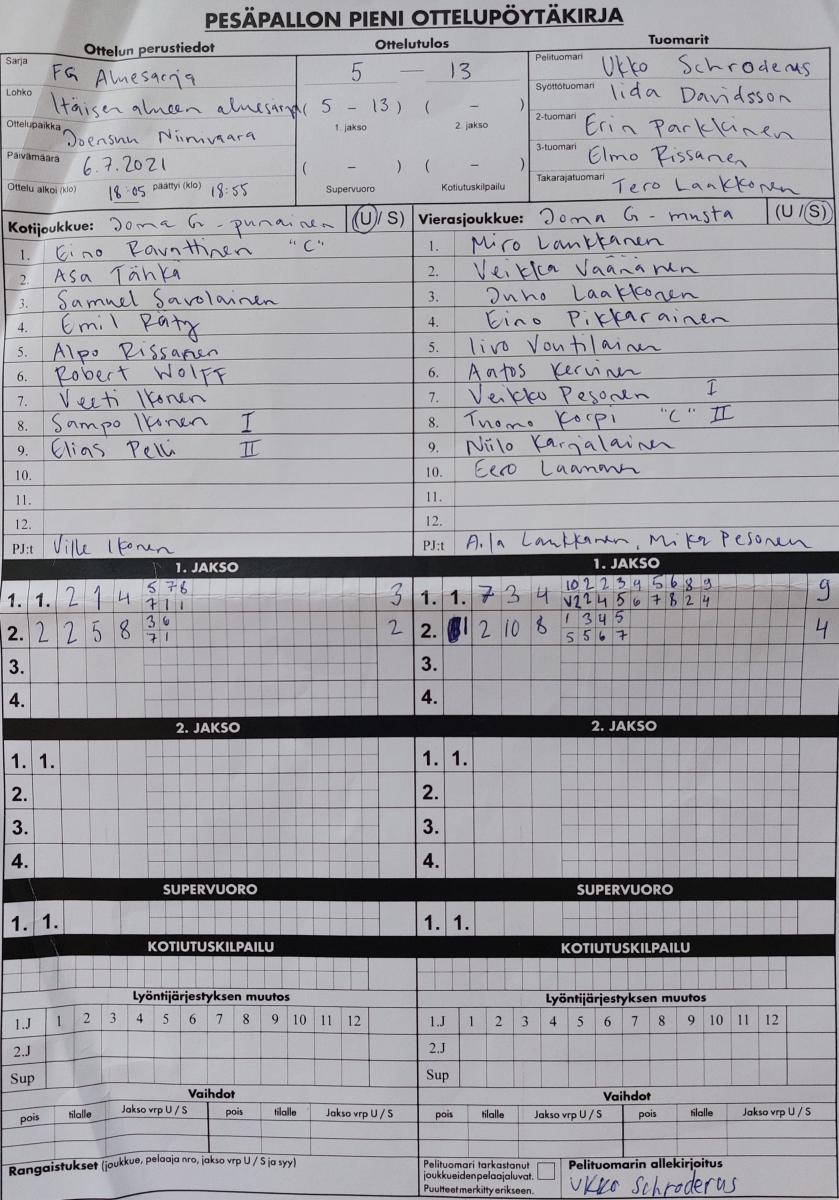 PESÄPALLON PIENI OTTELUPÖYTÄKIRJA
Ottelun perustiedot
Sarja FG Aluesarja
Lohko Itäisen alueen aluesarja
Ottelupaikka Joensuu Niinivaara
Päivämäärä 6.7.2021
Ottelu alkoi (klo) 18:05 päättyi (klo) 18:55
Ottelutulos
5 — 13
( 5 - 13 ) ( - )
1. jakso 2. jakso
( - ) ( - )
Supervuoro Kotiutuskilpailu
Tuomarit
Pelituomari Ukko Schroderus
Syöttötuomari Iida Davidsson
2-tuomari Erin Parkkinen
3-tuomari Elmo Rissanen
Takarajatuomari Tero Laakkonen
Kotijoukkue: Joma G - punainen (U / S)
1. Eino Ravattinen "C"
2. Asa Tähkä
3. Samuel Savolainen
4. Emil Räty
5. Alpo Rissanen
6. Robert Wolff
7. Veeti Ikonen
8. Sampo Ikonen I
9. Elias Pelli II
10.
11.
12.
PJ:t Ville Ikonen
Vierasjoukkue: Joma G - musta (U / S)
1. Miro Laukkanen
2. Veikka Väänänen
3. Juho Laakkonen
4. Eino Pikkarainen
5. Iivo Voutilainen
6. Aatos Kervinen
7. Veikko Pesonen I
8. Tuomo Korpi "C" II
9. Niilo Karjalainen
10. Eero Laamanen
11.
12.
PJ:t A.la Laukkanen, Mika Pesonen
1. JAKSO
1. 1. 2 1 4 5 7 8 3
7 1 1
2. 2 2 5 8 3 6 2
7 1
3.
4.
1. JAKSO
1. 1. 7 3 4 10 2 2 3 4 5 6 8 9 9
V 2 2 4 5 6 7 8 2 4
2. 1 2 10 8 1 3 4 5 4
5 5 6 7
3.
4.
2. JAKSO
1. 1.
2.
3.
4.
2. JAKSO
1. 1.
2.
3.
4.
SUPERVUORO
1. 1.
SUPERVUORO
1. 1.
KOTIUTUSKILPAILU
KOTIUTUSKILPAILU
Lyöntijärjestyksen muutos
1.J 1 2 3 4 5 6 7 8 9 10 11 12
2.J
Sup
Lyöntijärjestyksen muutos
1.J 1 2 3 4 5 6 7 8 9 10 11 12
2.J
Sup
Vaihdot
pois tilalle Jakso vrp U / S pois tilalle Jakso vrp U / S
Vaihdot
pois tilalle Jakso vrp U / S pois tilalle Jakso vrp U / S
Rangaistukset (joukkue, pelaaja nro, jakso vrp U / S ja syy)
Pelituomari tarkastanut
joukkueidenpelaajaluvat.
Puutteet merkitty erikseen.
Pelituomarin allekirjoitus
Ukko Schroderus